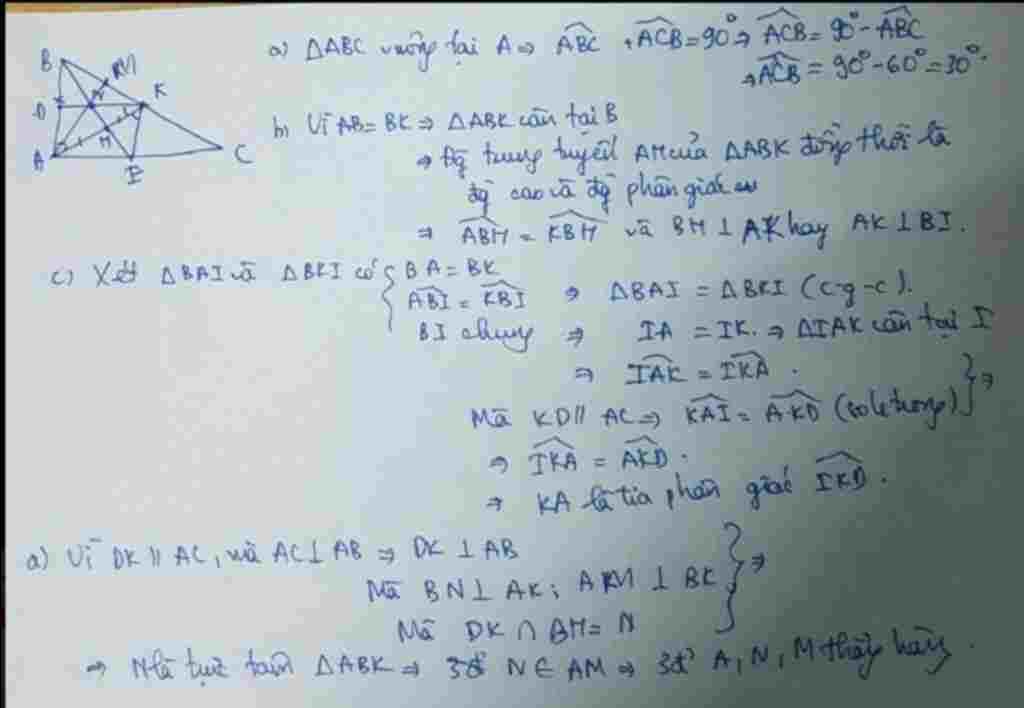 a) ΔABC vuông tại A ⇒ ∠ABC + ∠ACB = 90° ⇒ ∠ACB = 90° - ∠ABC
⇒ ∠ACB = 90° - 60° = 30°.
B
M
D
N
K
H
A
I
C
b) Vì AB = BK ⇒ ΔABK cân tại B
⇒ đg trung tuyến AM của ΔABK đồng thời là
đg cao và đg phân giác
⇒ ∠ABH = ∠KBH và BH ⊥ AK hay AK ⊥ BI.
c) Xét ΔBAI và ΔBKI có { BA = BK
∠ABI = ∠KBI ⇒ ΔBAI = ΔBKI (c-g-c).
BI chung ⇒ IA = IK. ⇒ ΔIAK cân tại I
⇒ ∠IAK = ∠IKA.
Mà KD // AC ⇒ ∠KAI = ∠AKD (so le trong) } ⇒
⇒ ∠IKA = ∠AKD.
⇒ KA là tia phân giác ∠IKD.
a) Vì DK // AC, mà AC ⊥ AB ⇒ DK ⊥ AB
Mà BN ⊥ AK; AM ⊥ BK } ⇒
Mà DK ∩ BH = N
⇒ N là trực tâm ΔABK ⇒ 3đ' N ∈ AM ⇒ 3đ' A, N, M thẳng hàng.